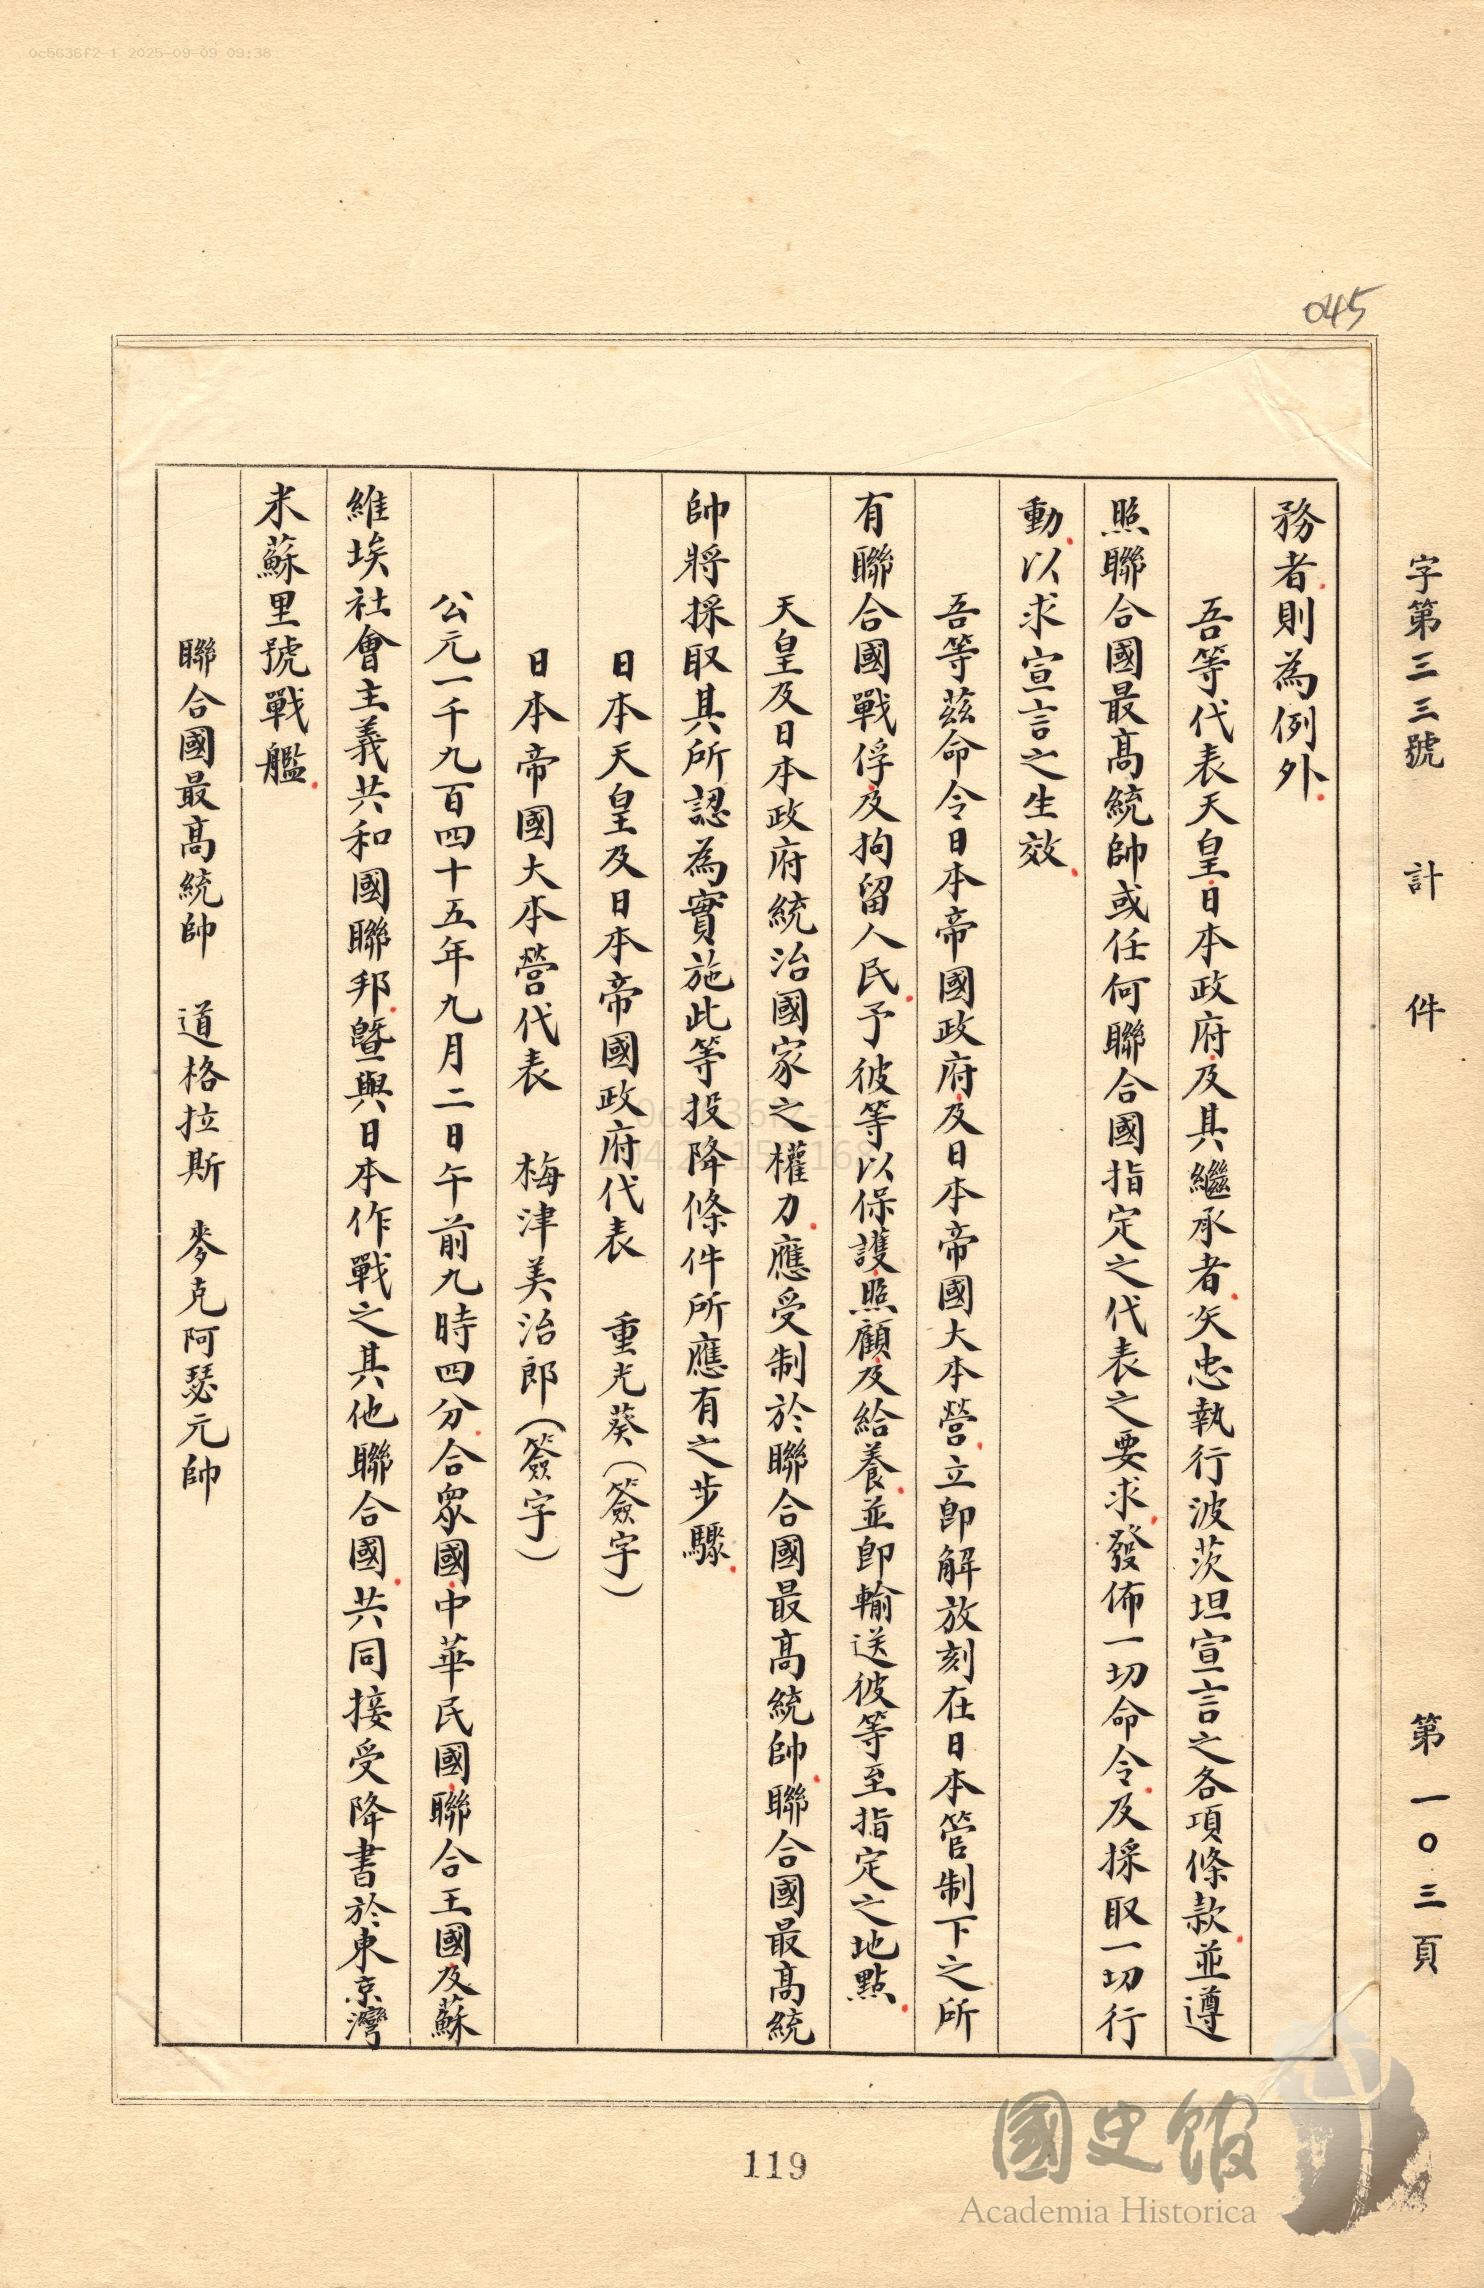 0c5636f2-1 2025-09-09 09:38
045
字第三三號 計 件 第一〇三頁
務者則為例外
吾等代表天皇日本政府及其繼承者矢忠執行波茨坦宣言之各項條款並遵
照聯合國最高統帥或任何聯合國指定之代表之要求發佈一切命令及採取一切行
動以求宣言之生效
吾等茲命令日本帝國政府及日本帝國大本營立即解放刻在日本管制下之所
有聯合國戰俘及拘留人民予彼等以保護照顧及給養並即輸送彼等至指定之地點
天皇及日本政府統治國家之權力應受制於聯合國最高統帥聯合國最高統
帥將採取其所認為實施此等投降條件所應有之步驟
日本天皇及日本帝國政府代表 重光葵(簽字)
日本帝國大本營代表 梅津美治郎(簽字)
公元一千九百四十五年九月二日午前九時四分合眾國中華民國聯合王國及蘇
維埃社會主義共和國聯邦曁與日本作戰之其他聯合國共同接受降書於東京灣
米蘇里號戰艦
聯合國最高統帥 道格拉斯 麥克阿瑟元帥
119
國史館
Academia Historica